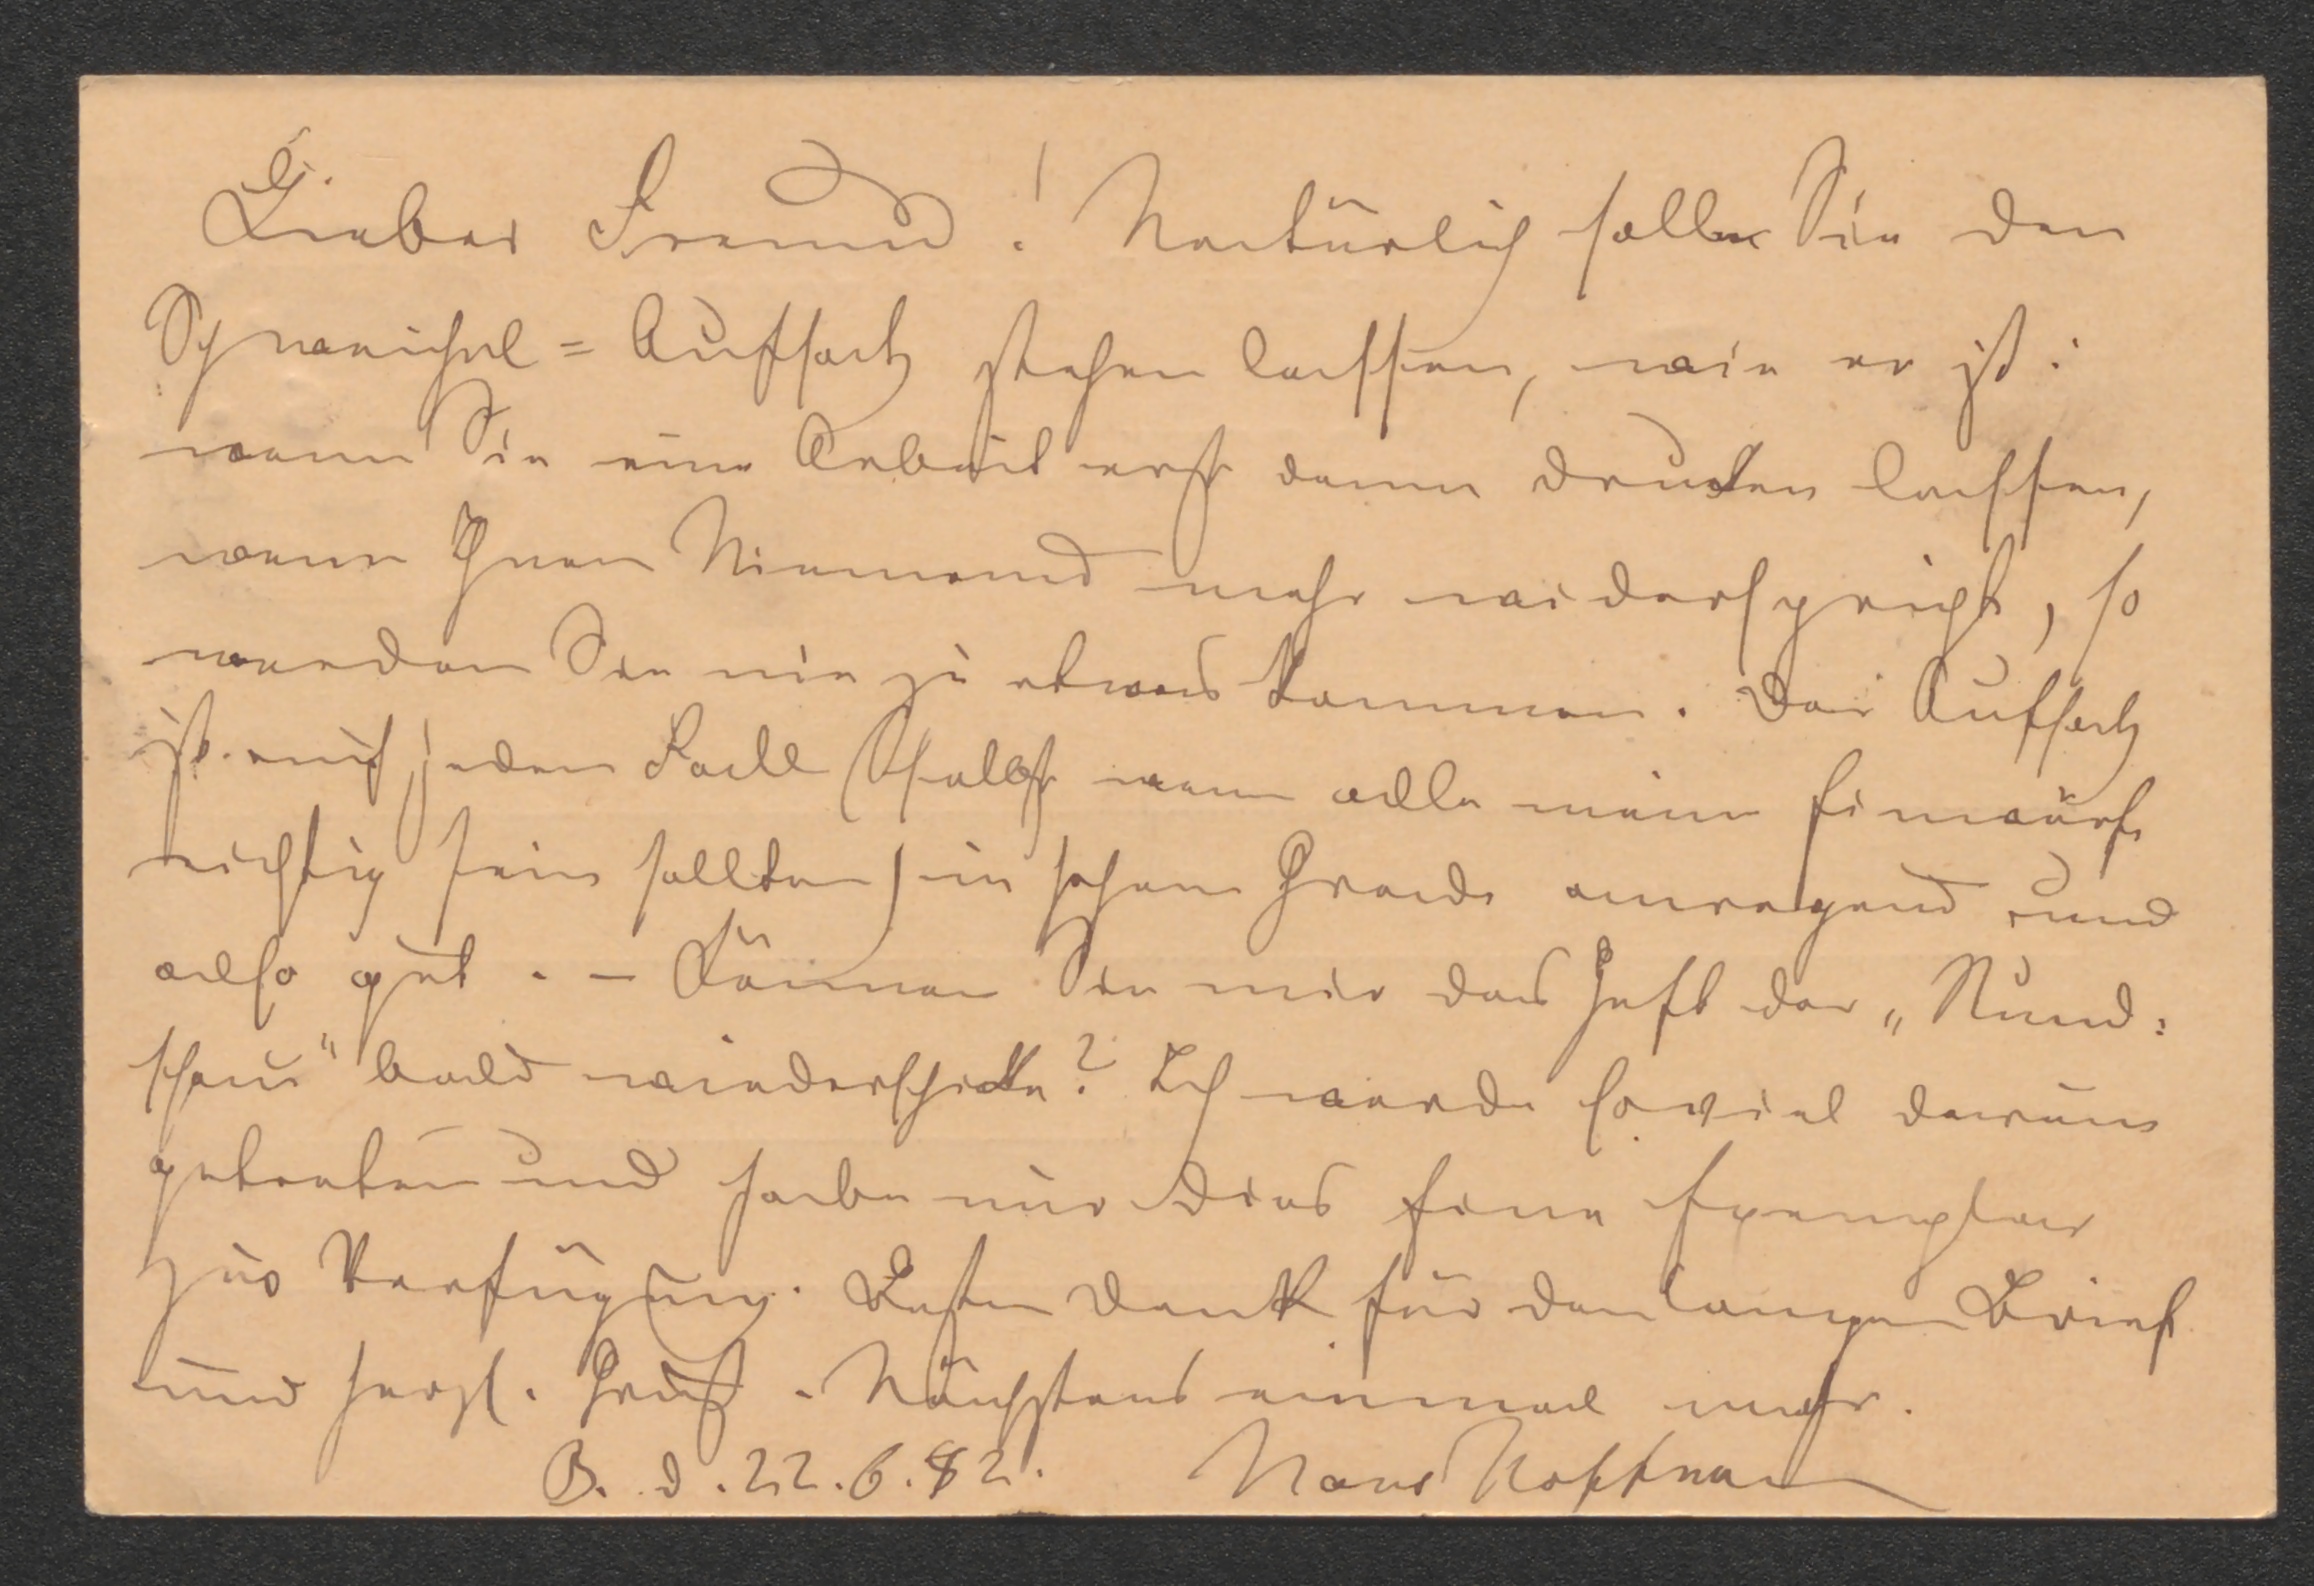 Lieber Freund! Natürlich sollen Sie den
Schweichel-Aufsatz stehen lassen, wie er ist:
wenn Sie eine Arbeit erst dann drucken lassen,
wenn Ihnen Niemand mehr widerspricht, so
werden Sie nie zu etwas kommen. Der Aufsatz
ist auf jeden Fall (selbst wenn alle meine Einwürfe
richtig sein sollten) in hohem Grade anregend und
also gut. – Können Sie mir das Heft der „Rund-
schau" bald wiederschicken? Ich werde soviel darum
getreten und habe nur dies Eine Exemplar
zur Verfügung. Besten Dank für den langen Brief
und herzl. Gruß. Nächstens einmal mehr.
B. d. 22.6.82. Hans Hoffmann